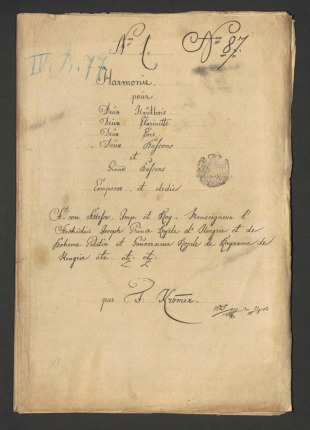 No 1 No 87.
IV. h. 77
Harmonie
pour
Deux Hautbois
Deux Clarinetts
Deux Cors
Deux Bassons
et
Grand Bassons
Composée et dedié
A son Altesse Imp: et Roy: Monseigneur l'
Archiduc Joseph Prince Royale d' Hongrie et de
Boheme Palatin et Gouverneur Royale de Royaume de
Hongrie etc. etc. etc.
par F. Krommer.